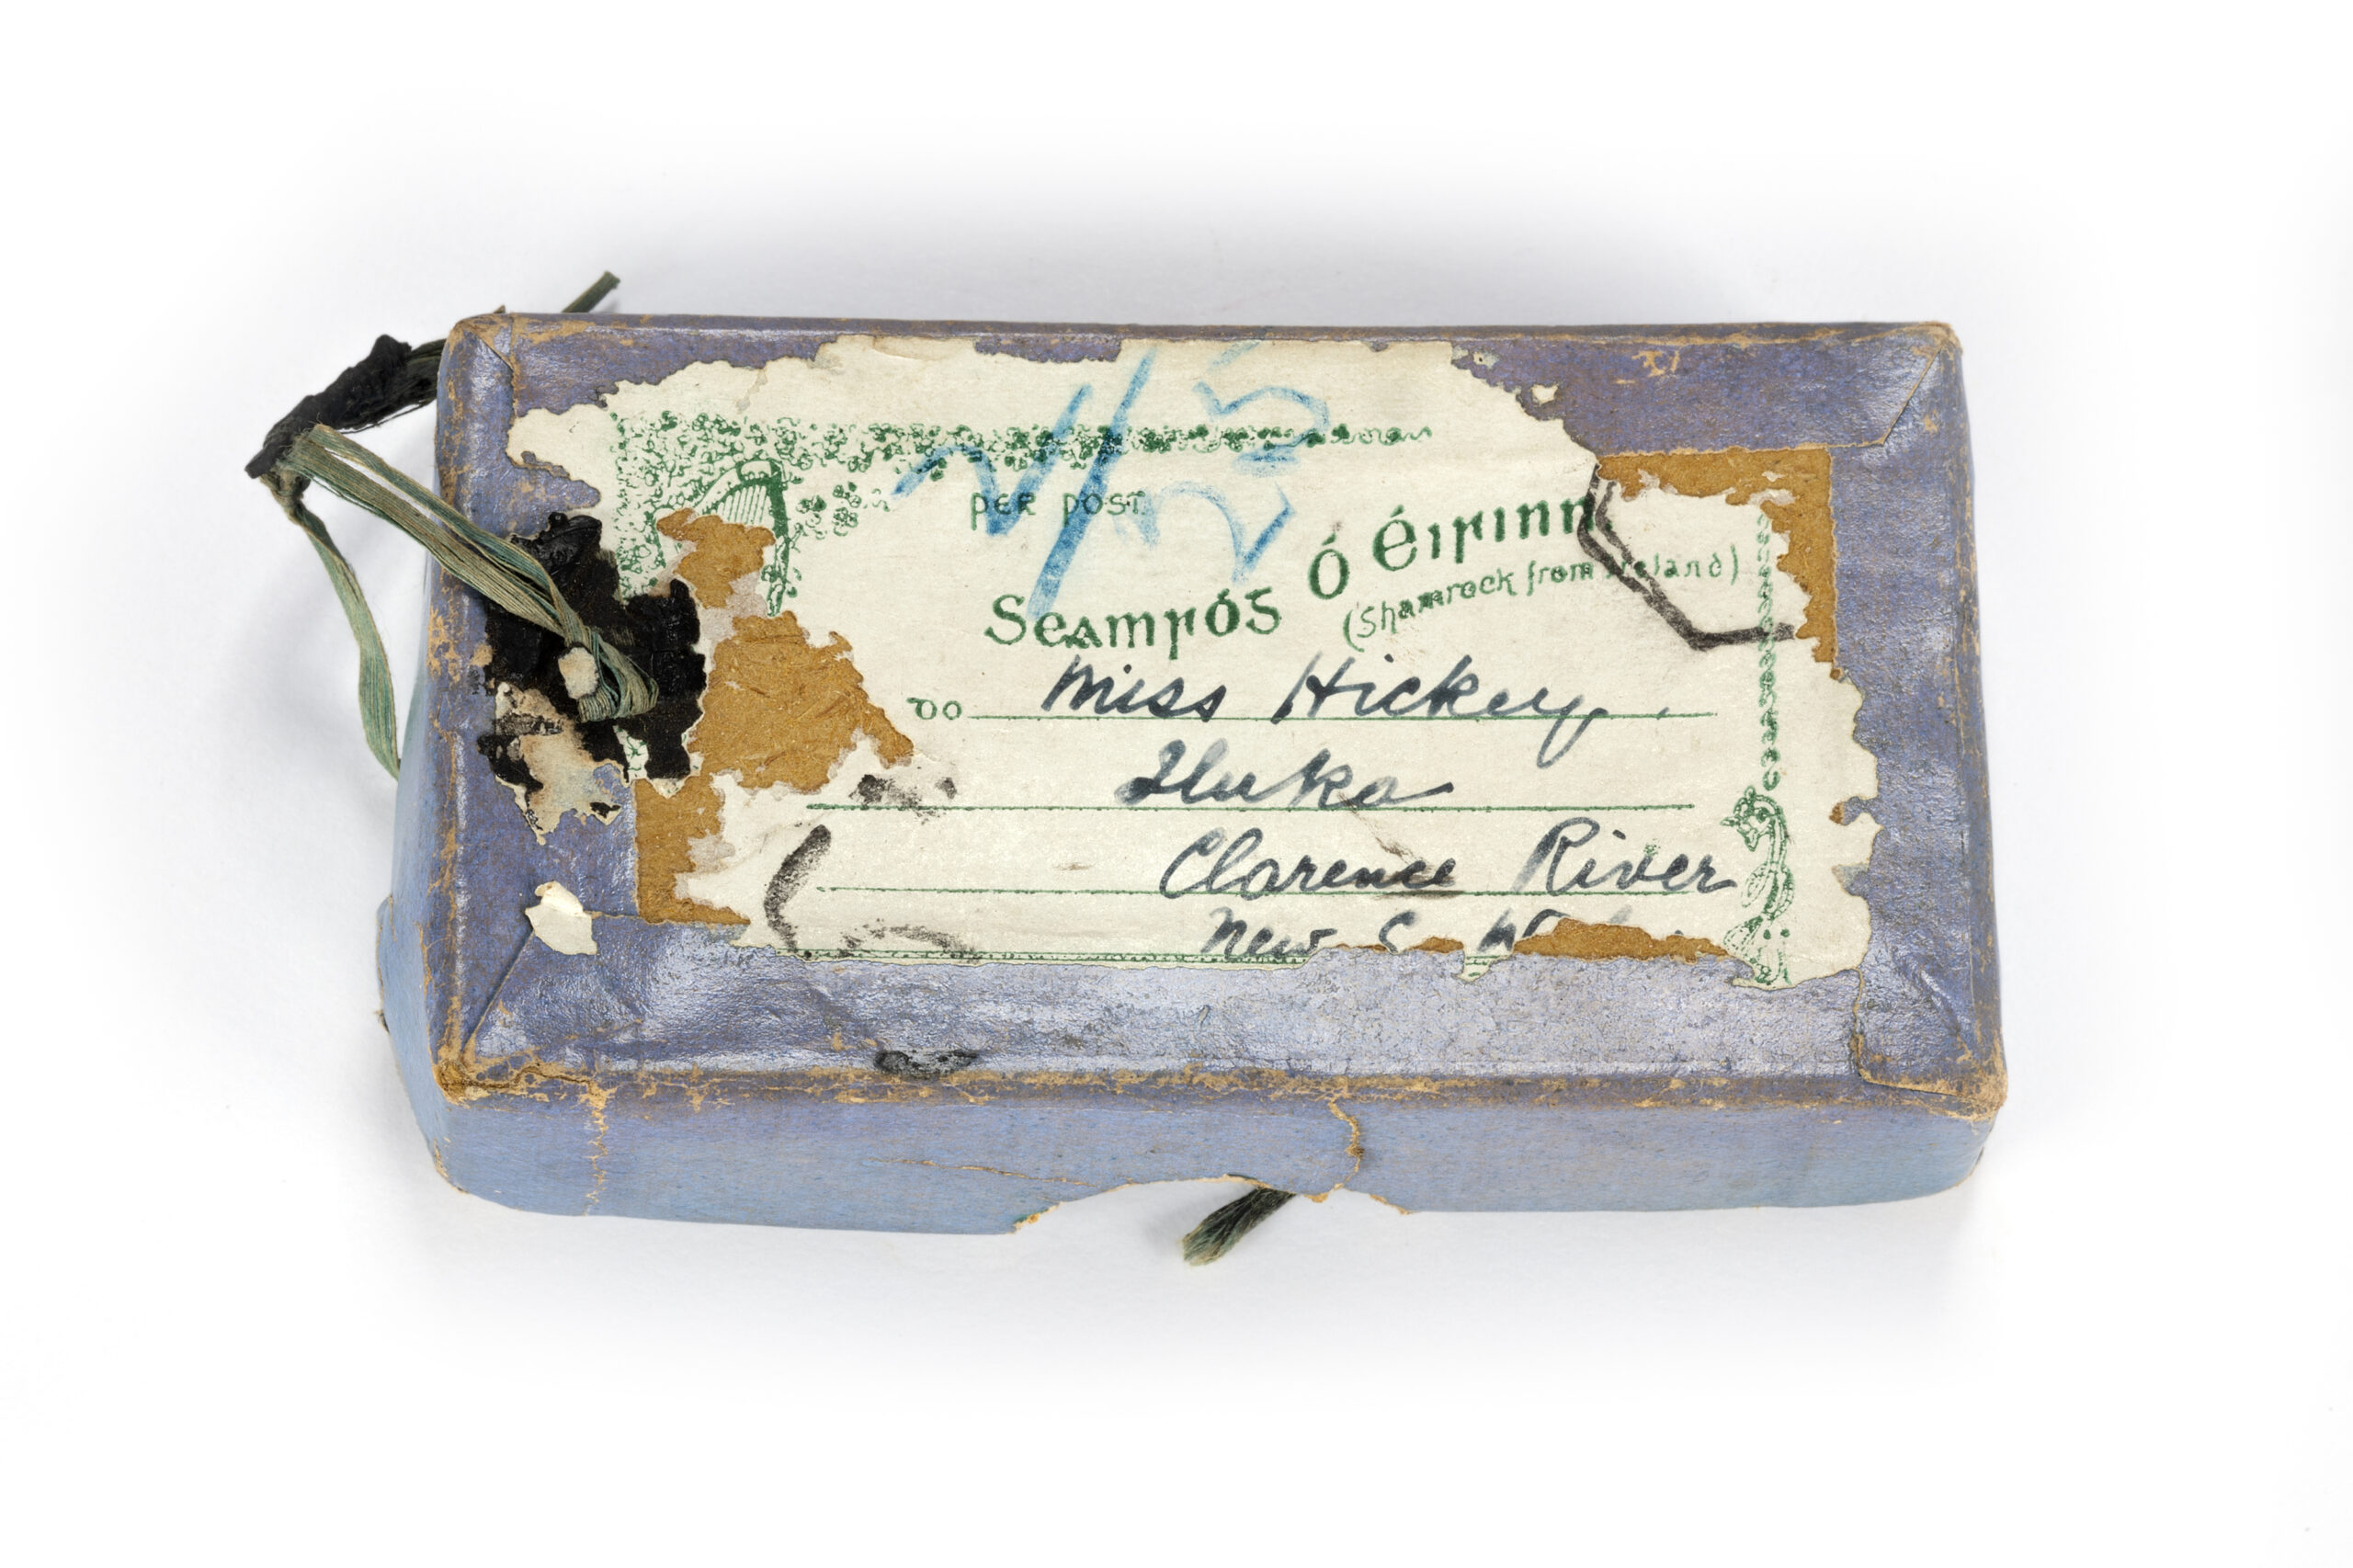 PER POST
Seamróg Ó Éirinn
(Shamrock from Ireland)
Do Miss Hickey.
Iluka
Clarence River
New S. W